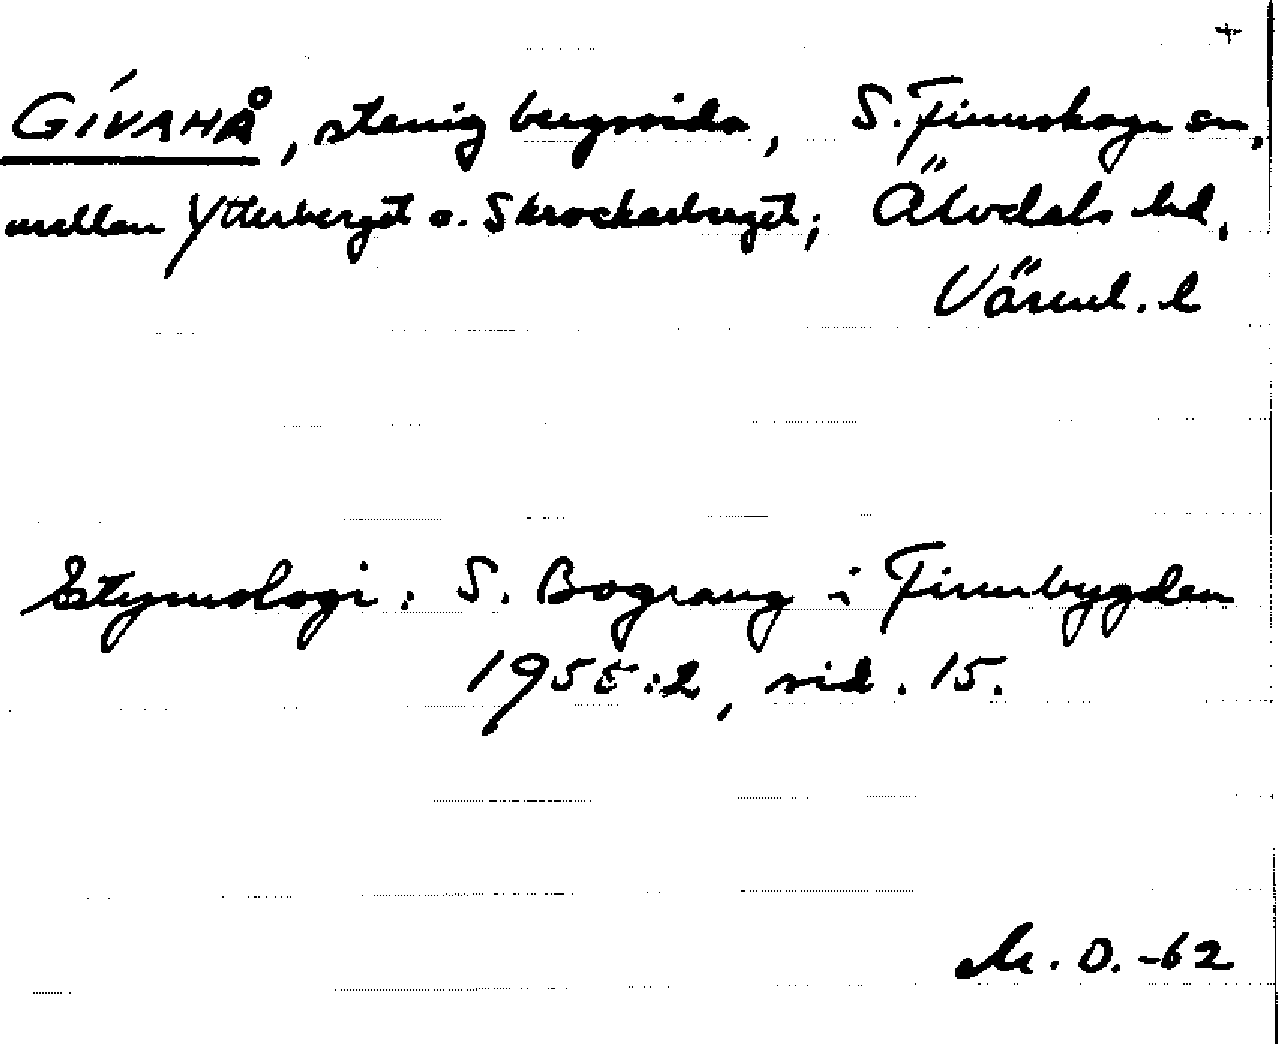 +
GÍVAHÅ, stenig bergsida, S. Finnskoga sn,
mellan Ytterberget o. Skrockarberget; Älvdals hd,
Värml. l
Etymologi: S. Bograng i Finnbygden
1955:2, sid. 15.
M. O. -62